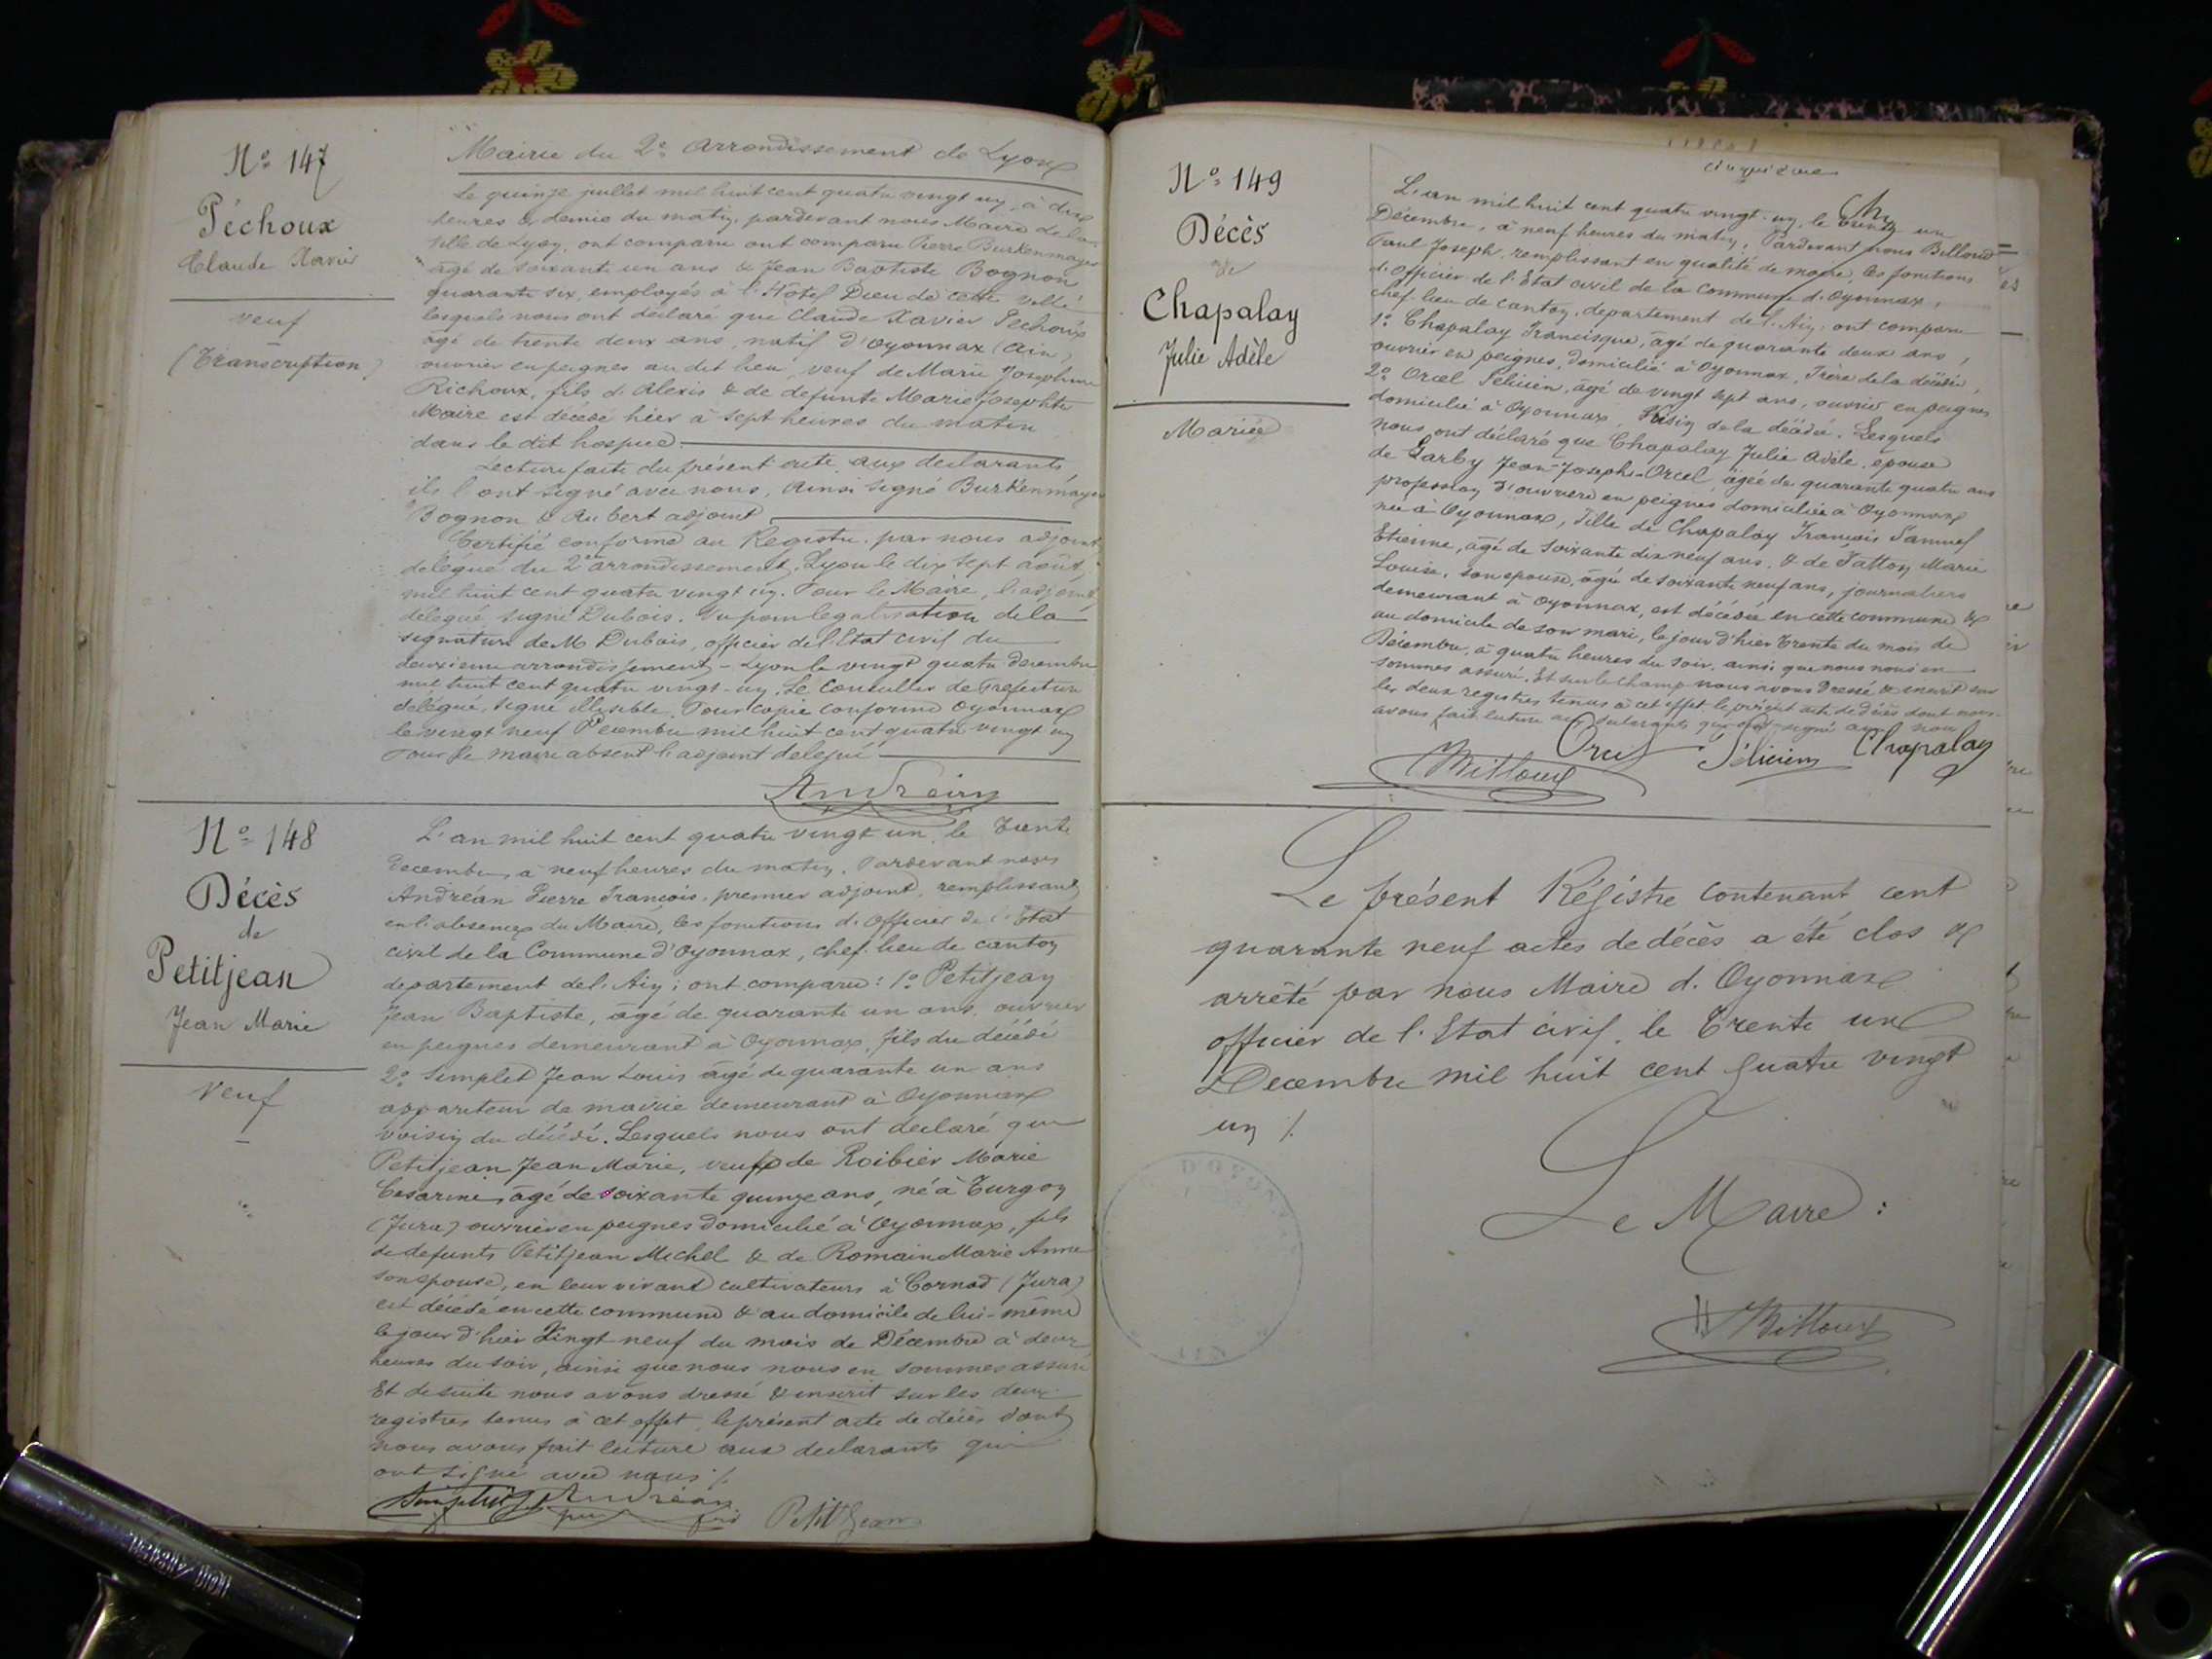 N° 147
Péchoux
Claude Xavier
veuf
(Transcription)
Mairie du 2e arrondissement de Lyon
Le quinze juillet mil huit cent quatre vingt un, à dix
heures & demie du matin, pardevant nous Maire de la
ville de Lyon, ont comparu ont comparu Pierre Burkenmayer
âgé de soixante un ans & Jean Baptiste Bognon
quarante six, employés à l'Hôtel Dieu de cette ville
lesquels nous ont déclaré que Claude Xavier Pechoux
âgé de trente deux ans, natif d'Oyonnax (Ain)
ouvrier en peignes audit lieu, veuf de Marie Josephine
Richoux, fils d'Alexis & de defunte Marie Josephte
Maire est décédé hier à sept heures du matin
dans le dit hospice
Lecture faite du présent acte aux declarants
ils l'ont signé avec nous, Ainsi signé Burkenmayer
Bognon & Aubert adjoint
Certifié conforme au Registre par nous adjoint
délégué du 2e arrondissement, Lyon le dix sept août
mil huit cent quatre vingt un. Pour le Maire, l'adjoint
délégué signé Dubois. Vu pour legalisation de la
signature de M Dubois, officier de l'Etat civil du
deuxieme arrondissement - Lyon le vingt quatre decembre
mil huit cent quatre vingt-un. Le Conseiller de Prefecture
délégué, signé illisible. Pour copie conforme Oyonnax
le vingt neuf Decembre mil huit cent quatre vingt un
Pour le maire absent l'adjoint délégué
Andréan
N° 148
Décès
de
Petitjean
Jean Marie
Veuf
L'an mil huit cent quatre vingt un, le trente
decembre, à neuf heures du matin, Pardevant nous
Andréan Pierre François, premier adjoint, remplissant
en l'absence du Maire, les fonctions d'Officier de l'Etat
civil de la Commune d'Oyonnax, chef-lieu de canton
departement de l'Ain; ont comparu: 1° Petitjean
Jean Baptiste, âgé de quarante un ans, ouvrier
en peignes demeurant à Oyonnax, fils du décédé
2° Simplet Jean Louis âgé de quarante un ans
appariteur de mairie demeurant à Oyonnax
voisin du décédé. Lesquels nous ont declaré que
Petitjean Jean Marie, veuf de Roibier Marie
Cesarine, âgé de soixante quinze ans, né à Turgon
(Jura) ouvrier en peignes domicilié à Oyonnax, fils
de defunts Petitjean Michel & de Romain Marie Anne
son épouse, en leur vivant cultivateurs à Cornod (Jura)
est décédé en cette commune & au domicile de lui-même
le jour d'hier Vingt-neuf du mois de Décembre à deux
heures du soir, ainsi que nous nous en sommes assuré
Et de suite nous avons dressé & inscrit sur les deux
registres tenus à cet effet, le présent acte de décès dont
nous avons fait lecture aux declarants qui
ont signé avec nous ./.
Simplet Andréan
Petitjean
N° 149
Décès
de
Chapalay
Julie Adèle
Mariée
cinquième
L'an mil huit cent quatre vingt-un, le trente un
Décembre, à neuf heures du matin, Pardevant nous Billoud
Paul Joseph, remplissant en qualité de maire, les fonctions
d'officier de l'Etat civil de la Commune d'Oyonnax,
chef-lieu de canton, departement de l'Ain; ont comparu
1° Chapalay Francisque, âgé de quarante deux ans,
ouvrier en peignes, domicilié à Oyonnax, frère de la décédée,
2° Orcel Félicien, âgé de vingt sept ans, ouvrier en peignes
domicilié à Oyonnax, Voisin de la décédée. Lesquels
nous ont déclaré que Chapalay Julie Adèle, epouse
de Jarby Jean-Joseph-Orcel, âgée de quarante quatre ans
profession d'ouvriere en peignes domiciliée à Oyonnax
née à Oyonnax, Fille de Chapalay François Samuel
Etienne, âgé de soixante dix neuf ans, & de Tatton Marie
Louise, son epouse, âgée de soixante neuf ans, journaliers
demeurant à Oyonnax, est décédée en cette commune &
au domicile de son mari, le jour d'hier trente du mois de
Décembre, à quatre heures du soir, ainsi que nous nous en
sommes assuré, Et sur le champ nous avons dressé & inscrit sur
les deux registres tenus à cet effet le présent acte de décès dont nous
avons fait lecture aux declarants qui ont signé avec nous
Orcel Félicien Chapalay
Billoud
Le présent Régistre contenant cent
quarante neuf actes de décès a été clos &
arrêté par nous Maire d'Oyonnax
officier de l'Etat civil, le trente un
Decembre mil huit cent quatre vingt
un ./.
Le Maire :
Billoud